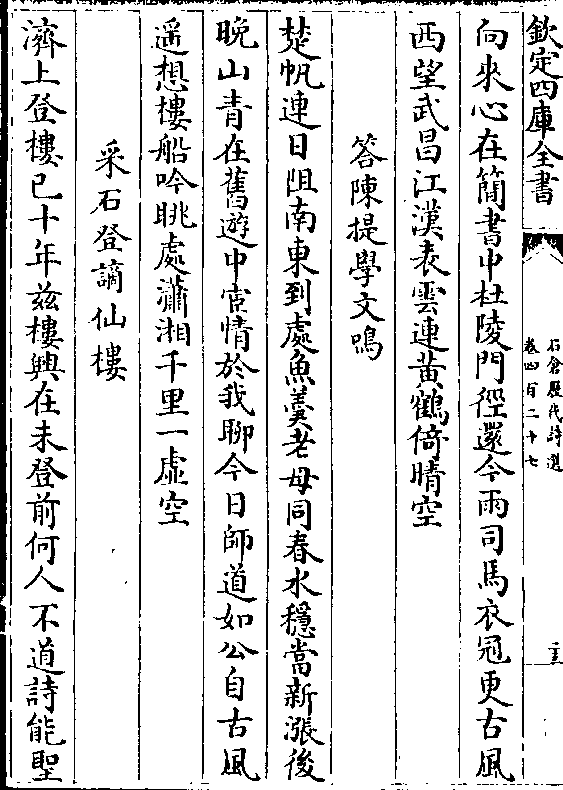 欽定四庫全書
石倉歷代詩選
卷四百二十七
向來心在簡書中杜陵門徑還今雨司馬衣冠更古風
西望武昌江漢表雲連黃鶴倚晴空
答陳提學文鳴
楚帆連日阻南東到處魚羮老母同春水穩當新漲後
晚山青在舊遊中宦情於我聊今日師道如公自古風
遥想樓船吟眺處瀟湘千里一虛空
采石登謫仙樓
濟上登樓已十年兹樓興在未登前何人不道詩能聖